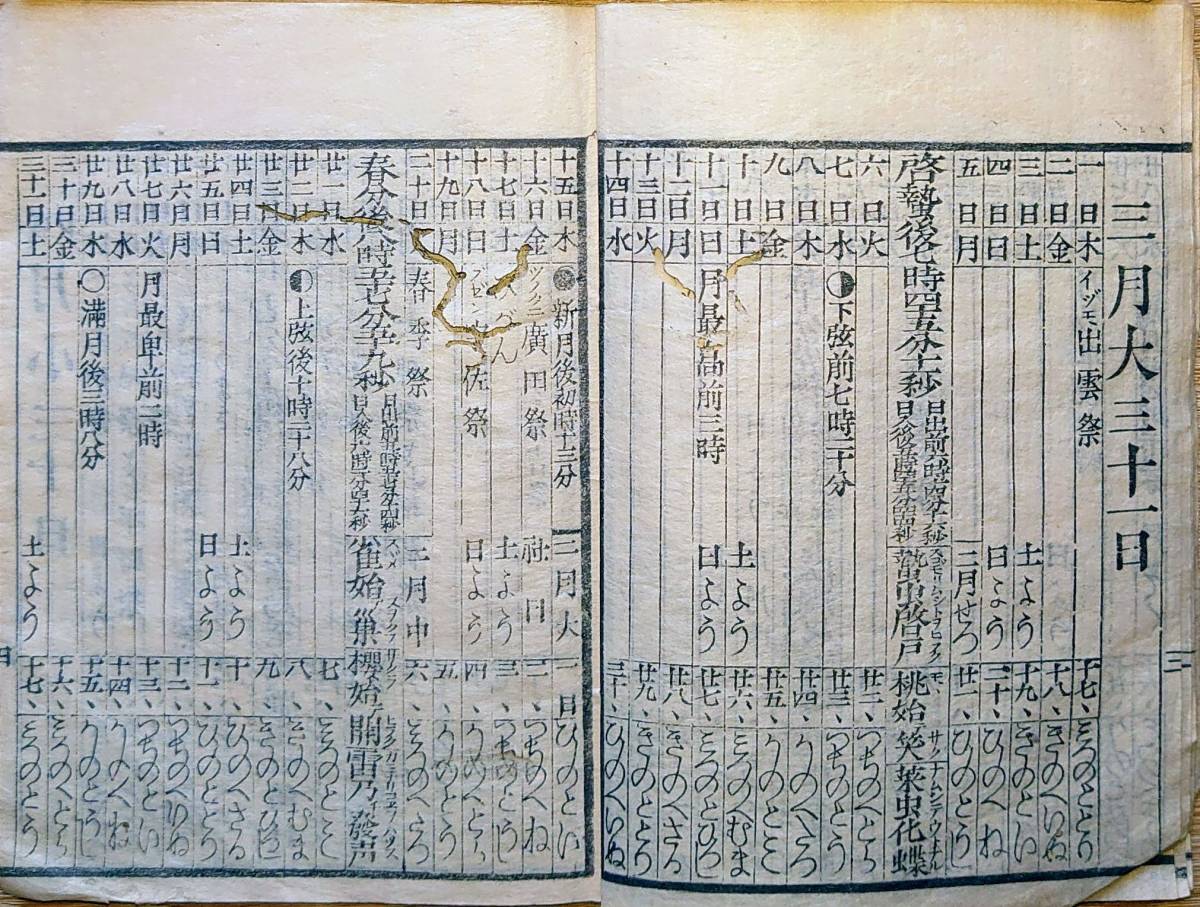 三月大三十一日
一日木 イヅモ出雲祭 十七、 みづのととり
二日金 十八、 きのへいぬ
三日土 土よう 十九、 きのとい
四日日 日よう 二十、 ひのへね
五日月 二月せつ 廿一、 ひのとうし
啓蟄後七時四十五分十一秒 日出前六時 日入後五時 蟄虫啓戸 桃始笑 菜虫化蝶
六日火 廿二、 つちのへとら
七日水 下弦前七時二十分 廿三、 つちのとう
八日木 廿四、 かのへたつ
九日金 廿五、 かのとミ
十日土 土よう 廿六、 みづのへむま
十一日日 月最高前三時 日よう 廿七、 みづのとひつじ
十二日月 廿八、 きのへさる
十三日火 廿九、 きのととり
十四日水 三十、 ひのへいぬ
十五日木 新月後初時十三分 二月大 一日 ひのとい
十六日金 ツノクニ廣田祭 社日 二、 つちのへね
十七日土 ひがん 土よう 三、 つちのとうし
十八日日 ブゼン宇佐祭 日よう 四、 かのへとら
十九日月 五、 かのとう
二十日火 春季祭 二月中 六、 みづのへたつ
春分後八時五十七分五十九秒 雀始巣 櫻始開 雷乃發声
廿一日水 七、 みづのとミ
廿二日木 上弦後十時二十八分 八、 きのへむま
廿三日金 九、 きのとひつじ
廿四日土 土よう 十、 ひのへさる
廿五日日 日よう 十一、 ひのととり
廿六日月 十二、 つちのへいぬ
廿七日火 月最卑前二時 十三、 つちのとい
廿八日水 十四、 かのへね
廿九日木 満月後三時八分 十五、 かのとうし
三十日金 十六、 みづのへとら
三十一日土 土よう 十七、 みづのとう